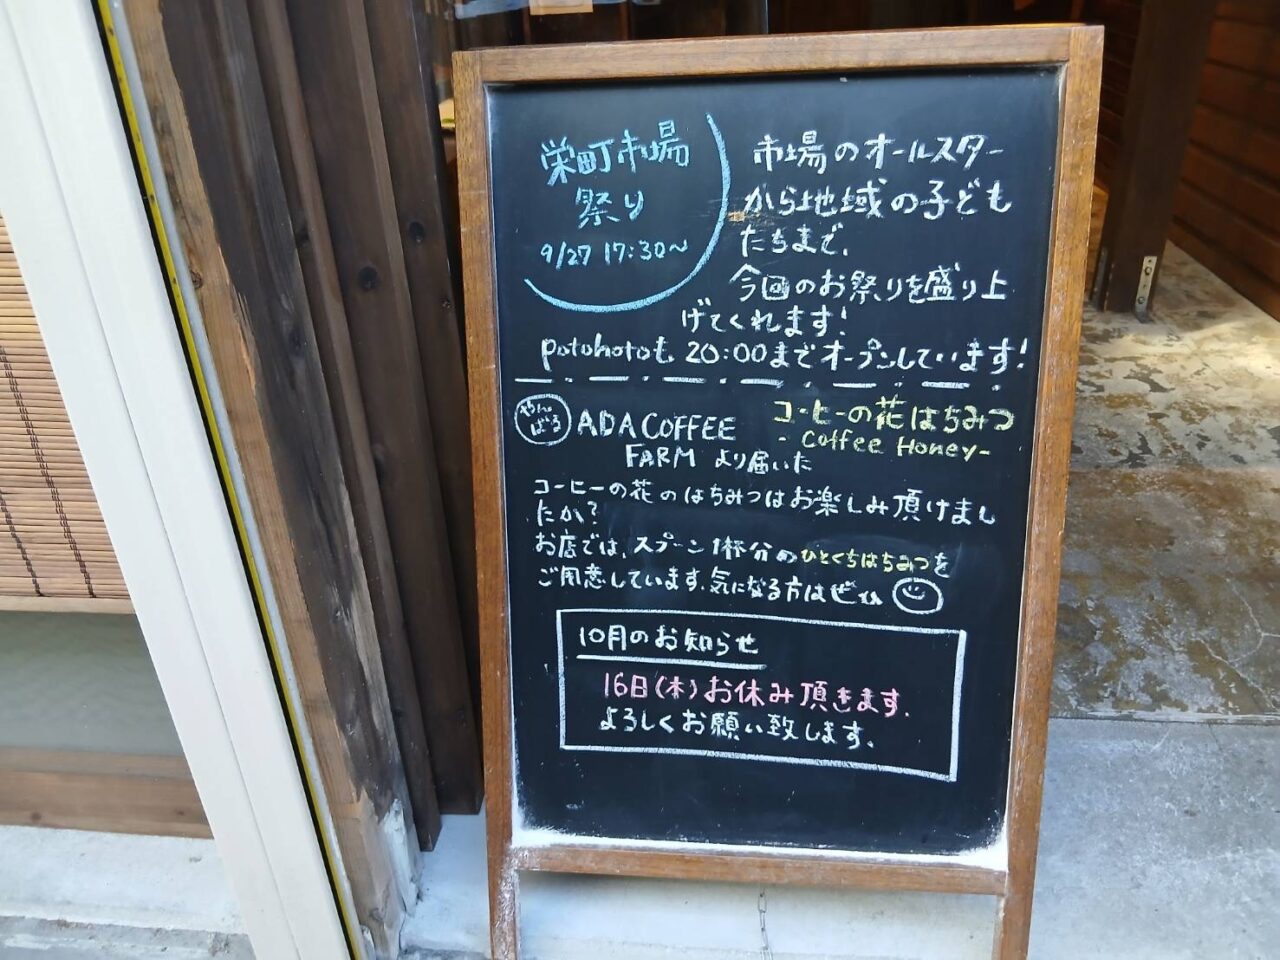 栄町市場
祭り
9/27 17:30〜
市場のオールスター
から地域の子ども
たちまで、
今回のお祭りを盛り上
げてくれます!
potohotoも 20:00までオープンしています!
やんばる
ADA COFFEE
FARM より届いた
コーヒーの花はちみつ
- Coffee Honey -
コーヒーの花のはちみつはお楽しみ頂けまし
たか?
お店では、スプーン1杯分のひとくちはちみつを
ご用意しています。気になる方はぜひ
10月のお知らせ
16日(木)お休み頂きます。
よろしくお願い致します。